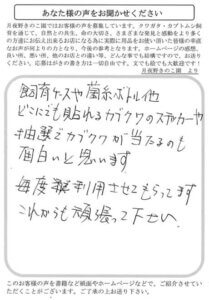 あなた様の声をお聞かせください
月夜野きのこ園ではお客様の声を募集しています。クワガタ・カブトムシ飼
育を通じて、自然との共生、命の大切さ、さまざまな発見と感動をより多く
の方達にお伝え出来るお店になる為に実際に用品をお使い頂いた皆様の率直
なお声が何よりの力となり、今後の参考となります。ホームページの感想、
良い所、悪い所、他のお店との違い等、どんな事でも結構ですので、お送り
ください。応募はがきの書き方は一切自由です。文でも絵でも大歓迎です！
月夜野きのこ園 より
飼育ケースや菌糸ボトル他
どこにでも貼れるカブクワのステッカーや
抽選でカブクワが当たるのも
面白いと思います
毎度 利用させてもらってます
これからも頑張って下さい
このお客様の声を書籍など紙面やホームページなどで、ご紹介させていた
だくことがございます。ご了承の上お送り下さい。